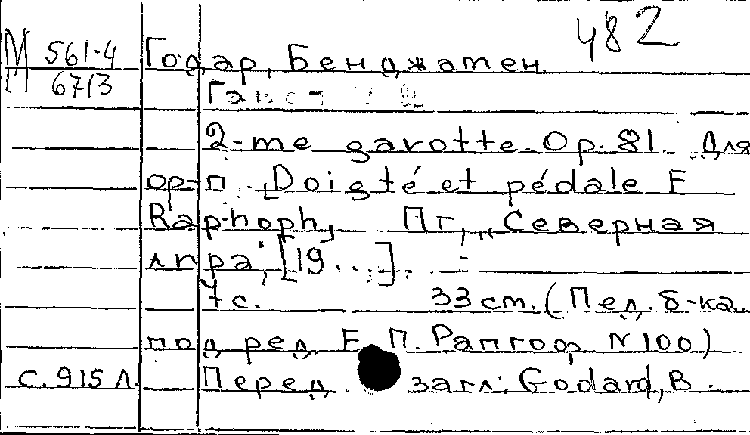 482
М 561-4
6713
Годар, Бенджамен
2-me gavotte. Op. 81. Для
ор-п [Doigté et pédale E
Raphoph,] Пг, „Северная
лира", [19...].
7 с. 33 см. (Пед. б-ка
под ред. Е. П. Рапгоф N 100)
с. 915 л. Перед загл: Godard, B.